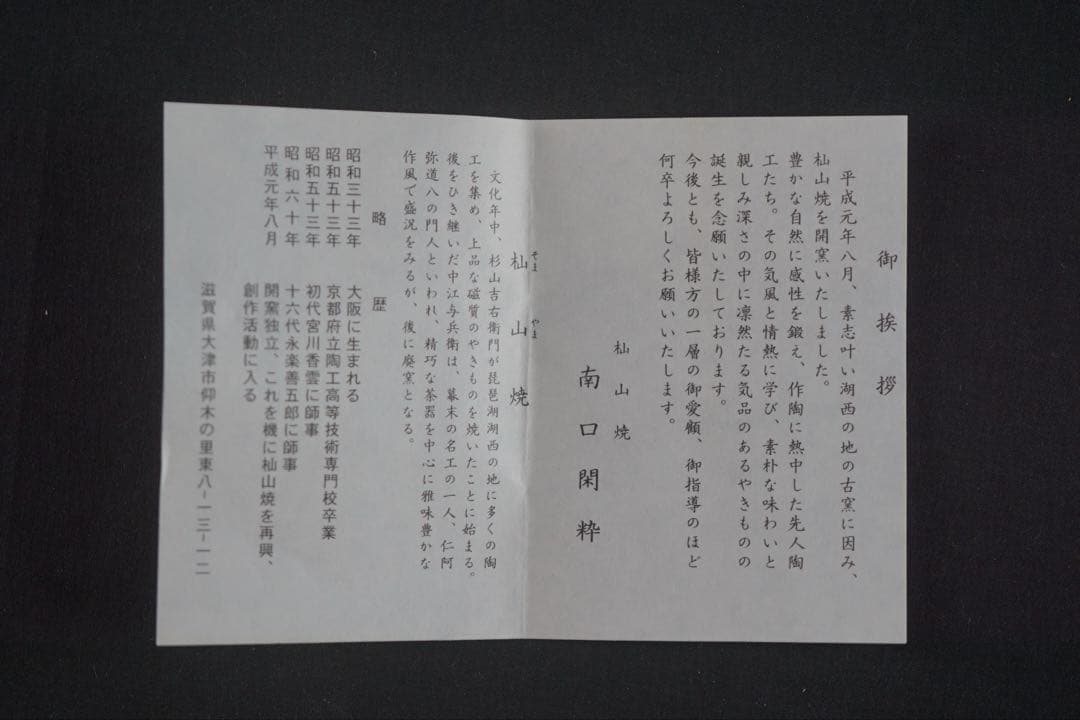 御挨拶
平成元年八月、素志叶い湖西の地の古窯に因み、
杣山焼を開窯いたしました。
豊かな自然に感性を鍛え、作陶に熱中した先人陶
工たち。その気風と情熱に学び、素朴な味わいと
親しみ深さの中に凛然たる気品のあるやきものの
誕生を念願いたしております。
今後とも、皆様方の一層の御愛顧、御指導のほど
何卒よろしくお願いいたします。
杣山焼
南口閑粋
杣山焼
そまやま
文化年中、杉山吉右衛門が琵琶湖湖西の地に多くの陶
工を集め、上品な磁質のやきものを焼いたことに始まる。
後をひき継いだ中江与兵衛は、幕末の名工の一人、仁阿
弥道八の門人といわれ、精巧な茶器を中心に雅味豊かな
作風で盛況をみるが、後に廃窯となる。
略歴
昭和三十三年 大阪に生まれる
昭和五十三年 京都府立陶工高等技術専門校卒業
昭和五十三年 初代宮川香雲に師事
昭和六十年 十六代永楽善五郎に師事
平成元年八月 開窯独立、これを機に杣山焼を再興、
創作活動に入る
滋賀県大津市仰木の里東八-一三-一二